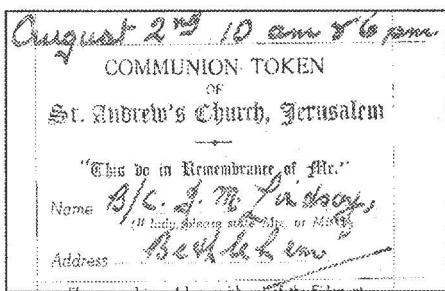 August 2nd 10 am & 6 pm.
COMMUNION TOKEN
OF
St. Andrew's Church, Jerusalem
"This do in Remembrance of Me."
Name B/C. J. M. Lindsay,
(If lady, please state Mrs. or Miss)
Address Bethlehem